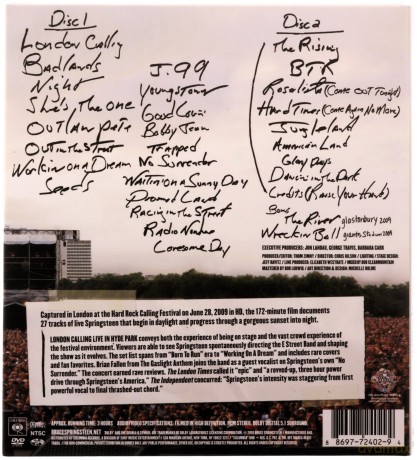 Disc 1
London Calling
Badlands
Night
She's The One
Outlaw Pete
Out in the Street
Workin on a Dream
Seeds
J. 99
Youngstown
Good Lovin
Bobby Jean
Trapped
No Surrender
Waitin on a Sunny Day
Promised Land
Racing in the Street
Radio Nowhere
Lonesome Day
Disc 2
The Rising
BTR
Rosalita (Come Out Tonight)
Hard Times (Come Again No More)
Jungleland
American Land
Glory Days
Dancin in the Dark
Credits (Raise Your Hand)
Bonus
The River glastonbury 2009
Wreckin Ball giants stadium 2009
EXECUTIVE PRODUCERS: JON LANDAU, GEORGE TRAVIS, BARBARA CARR
Captured in London at the Hard Rock Calling Festival on June 28, 2009 in HD, the 172-minute film documents
27 tracks of live Springsteen that begin in daylight and progress through a gorgeous sunset into night.
LONDON CALLING LIVE IN HYDE PARK conveys both the experience of being on stage and the vast crowd experience of
the festival environment. Viewers are able to see Springsteen spontaneously directing the E Street Band and shaping
the show as it evolves. The set list spans from "Born To Run" era to "Working On A Dream" and includes rare covers
and fan favorites. Brian Fallon from The Gaslight Anthem joins the band as a guest vocalist on Springsteen's own "No
Surrender." The concert earned rave reviews. The London Times called it "epic" and "a revved-up, three hour power
drive through Springsteen's America." The Independent concurred: "Springsteen's intensity was staggering from first
powerful vocal to final thrashed-out chord."
BRUCESPRINGSTEEN.NET
DVD
NTSC
8 86977-72402-9 4